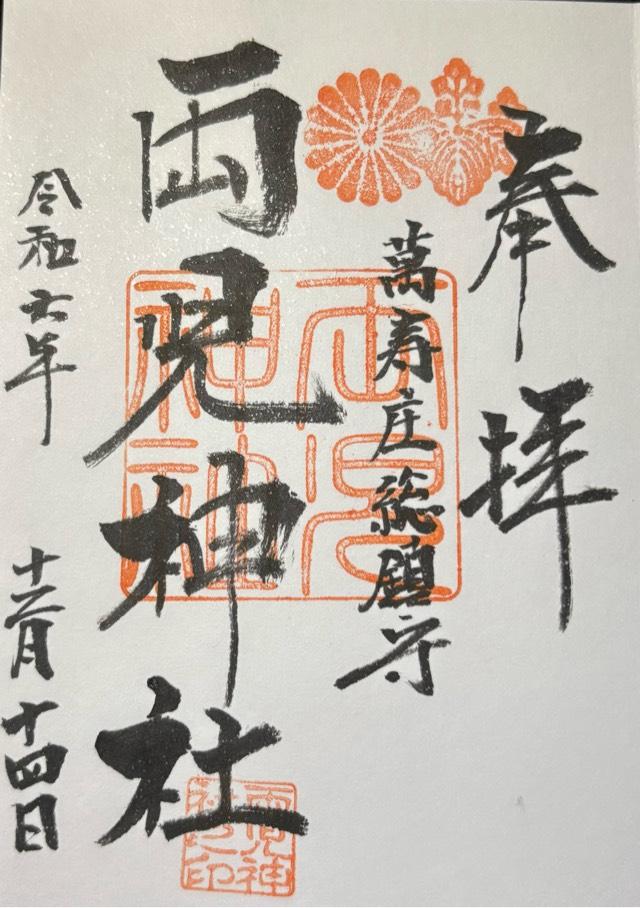 奉拝
萬寿庄総鎮守
両児神社
令和六年
十二月十四日
両児神社
両児神社之印